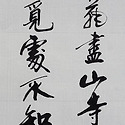 盡山寺
覓處不知